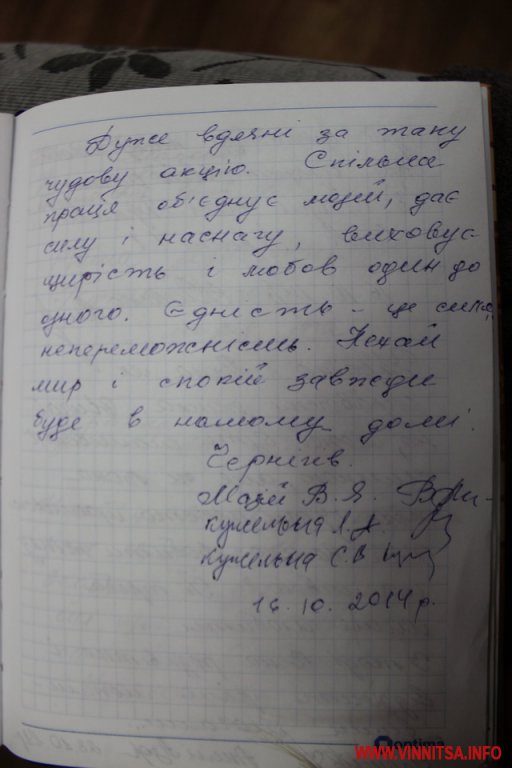 Дуже вдячні за таку
чудову акцію. Спільна
праця об'єднує людей, дає
силу і наснагу, виховує
щирість і любов один до
одного. Єдність – це сила,
непереможність. Нехай
мир і спокій завжди
буде в нашому домі.
Чернігів.
В. Я.
Кужельна Л.
Кужельна С. В.
16. 10. 2014 р.
optima
WWW.VINNITSA.INFO